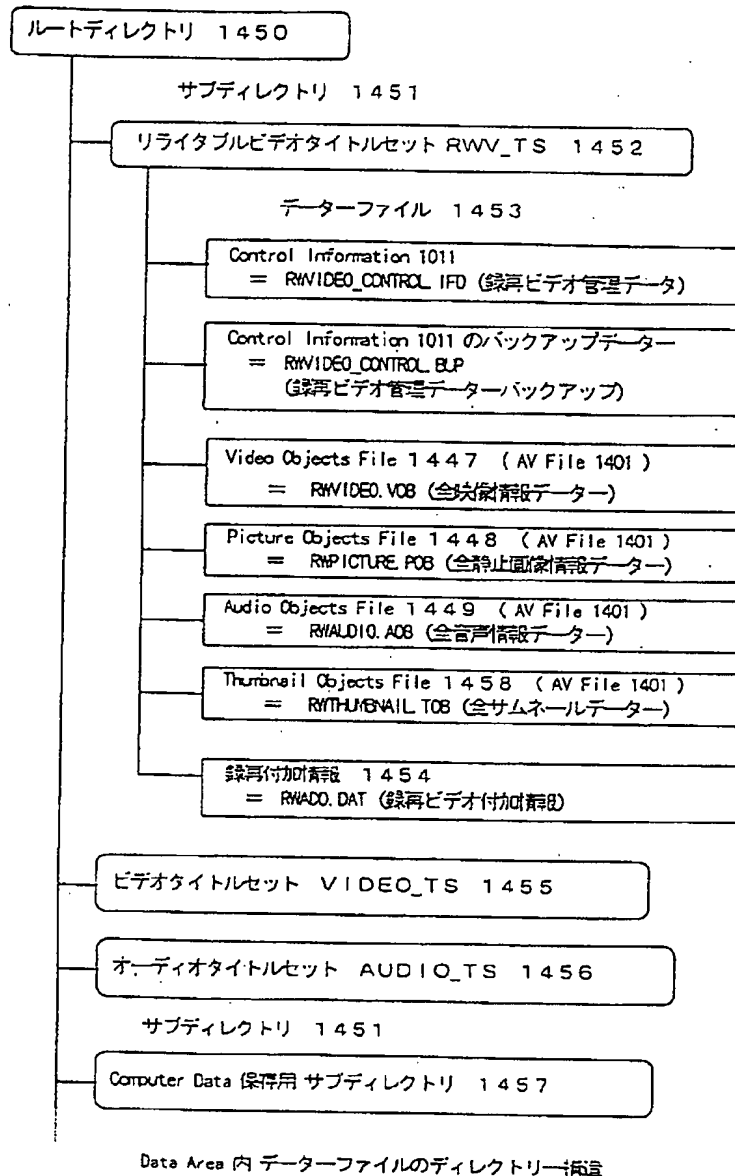 ルートディレクトリ 1450
サブディレクトリ 1451
リライタブルビデオタイトルセット RWV_TS 1452
データーファイル 1453
Control Information 1011
= RWVIDEO_CONTROL.IFO (録再ビデオ管理データ)
Control Information 1011 のバックアップデーター
= RWVIDEO_CONTROL.BUP
(録再ビデオ管理データーバックアップ)
Video Objects File 1447 ( AV File 1401 )
= RWVIDEO.VOB (全映像情報データー)
Picture Objects File 1448 ( AV File 1401 )
= RWPICTURE.POB (全静止画像情報データー)
Audio Objects File 1449 ( AV File 1401 )
= RWAUDIO.AOB (全音声情報データー)
Thumbnail Objects File 1458 ( AV File 1401 )
= RWTHUMBNAIL.TOB (全サムネールデーター)
録再付加情報 1454
= RWADD.DAT (録再ビデオ付加情報)
ビデオタイトルセット VIDEO_TS 1455
オーディオタイトルセット AUDIO_TS 1456
サブディレクトリ 1451
Computer Data 保存用 サブディレクトリ 1457
Data Area 内 データーファイルのディレクトリー構造